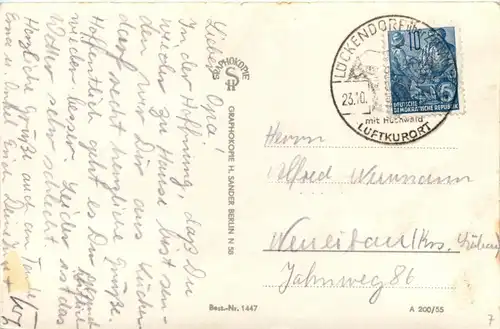 Lieber Opa!
In der Hoffnung, daß Du
wieder zu Hause bist sen-
den wir Dir aus Lücken-
dorf recht herzliche Grüße.
Hoffentlich geht es Dir
wieder besser. Leider ist das
Wetter sehr schlecht.
Herzliche Grüße auch an Tante
Erna u. Onkel Erich
GRAPHOKOPIE
GRAPHOKOPIE H. SANDER BERLIN N 58
Best.-Nr. 1447
LÜCKENDORF
23.10.
mit Hochwald
LUFTKURORT
10
5
DEUTSCHE
DEMOKRATISCHE REPUBLIK
Herrn
Alfred
Jahnweg 86
A 200/55
7